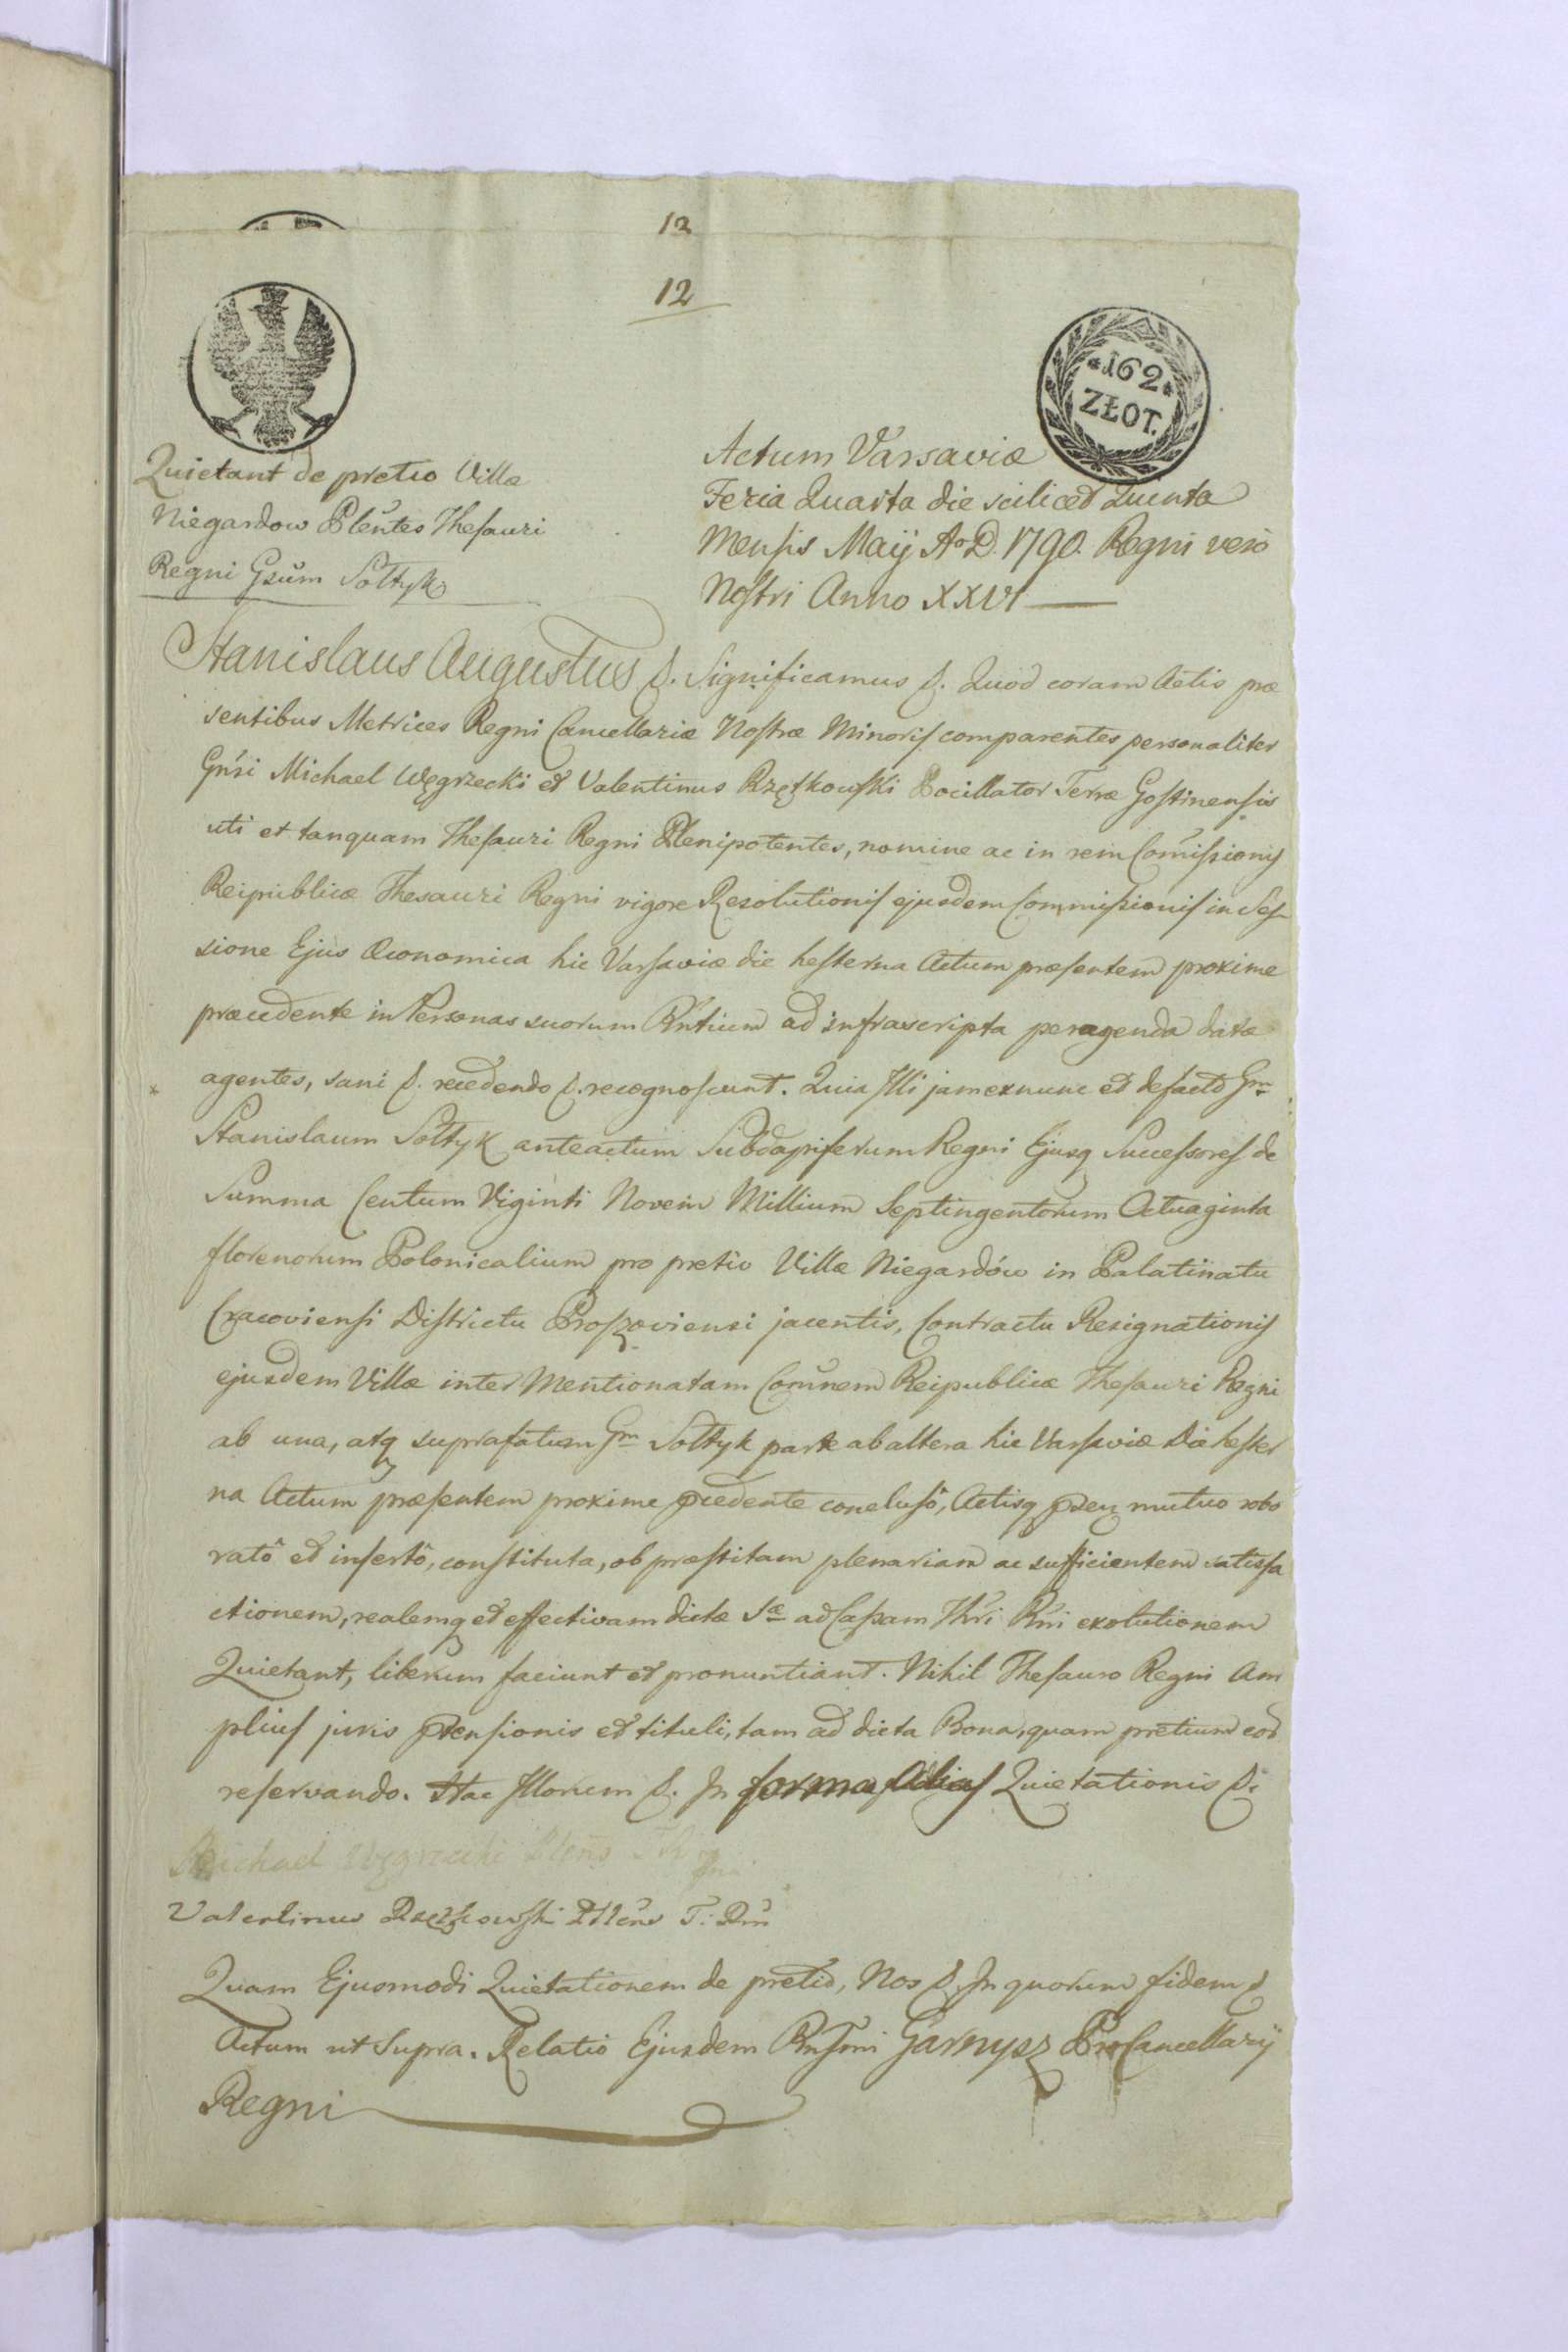 12
12
*162*
ZŁOT.
Quietant de pretio Villæ
Niegardow Plentes Thesauri
Regni Gsum Sołtyk
Actum Varsaviæ
Feria Quarta die scilicet Quinta
Mensis Maij Ao D. 1790. Regni verò
Nostri Anno XXVI
Stanislaus Augustus &. Significamus &. Quod coram Actis præ
sentibus Metrices Regni Cancellariæ Nostræ Minoris comparentes personaliter
Gnsi Michael Węgrzecki et Valentinus Rzętkowski Pocillator Terræ Gostinensis
uti et tanquam Thesauri Regni Plenipotentes, nomine ac in rem Comissionis
Reipublicæ Thesauri Regni vigore Resolutionis ejusdem Commissionis in Ses
sione Ejus Œconomica hic Varsaviæ die hesterna Actum præsentem proxime
præcedente in Personas suorum Rntium ad infrascripta peragenda datæ
agentes, sani &. recedendo &. recognoscunt. Quia Illi jam exnunc et defacto Gm
Stanislaum Sołtyk anteactum Subdapiferum Regni Ejusq Successores de
Summa Centum Viginti Novem Millium Septingentorum Octuaginta
florenorum Polonicalium pro pretio Villæ Niegardów in Palatinatu
Cracoviensi Districtu Proszoviensi jacentis, Contractu Resignationis
ejusdem Villæ inter Mentionatam Comnem Reipublicæ Thesauri Regni
ab una, atq suprafatum Gm Sołtyk parte ab altera hic Varsaviæ Die hester
na Actum præsentem proxime pcedente conclusô, Actisq psen mutuo robo
ratô et insertô, constituta, ob præstitam plenariam ac sufficientem satisfa
ctionem, realemq et effectivam dictæ Sæ ad Cassam Thri Rni exolutionem
Quietant, liberum faciunt et pronuntiant. Nihil Thesauro Regni Am
plius juris ptensionis et tituli, tam ad dicta Bona, quam pretium eor
reservando. Hac Illorum &. In forma Quietationis &.
Michael Węgrzecki Plens
Valentinus Rzętkowski Plens T: Rni
Quam Ejusmodi Quietationem de pretio, Nos &. In quorum fidem &
Actum ut Supra. Relatio Ejusdem Garnysz ProCancellarij
Regni